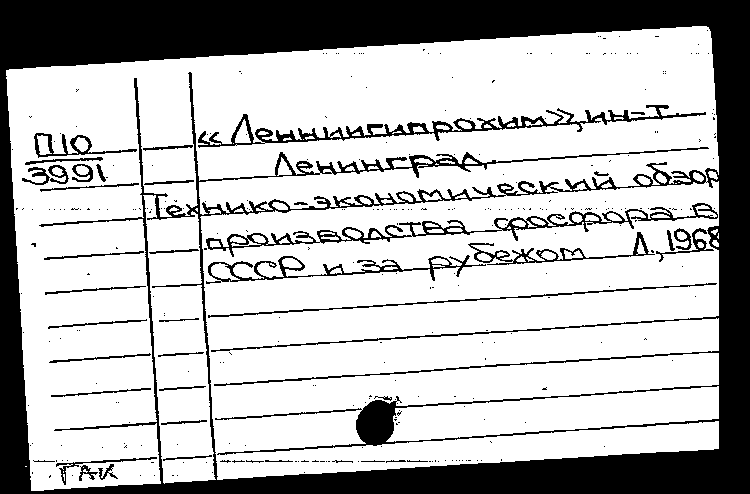 П10
3991
«Ленниигипрохим», ин-т.
Ленинград.
Технико-экономический обзор
производства фосфора в
СССР и за рубежом Л., 1968
ГАК